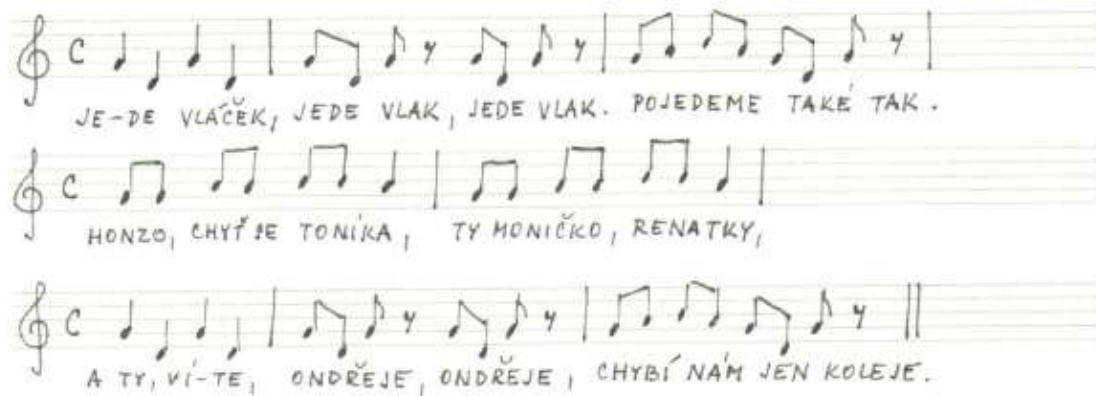 JE-DE VLÁČEK, JEDE VLAK, JEDE VLAK. POJEDEME TAKÉ TAK.
HONZO, CHYŤ SE TONÍKA, TY MONIČKO, RENATKY,
A TY, VÍ-TE, ONDŘEJE, ONDŘEJE, CHYBÍ NÁM JEN KOLEJE.